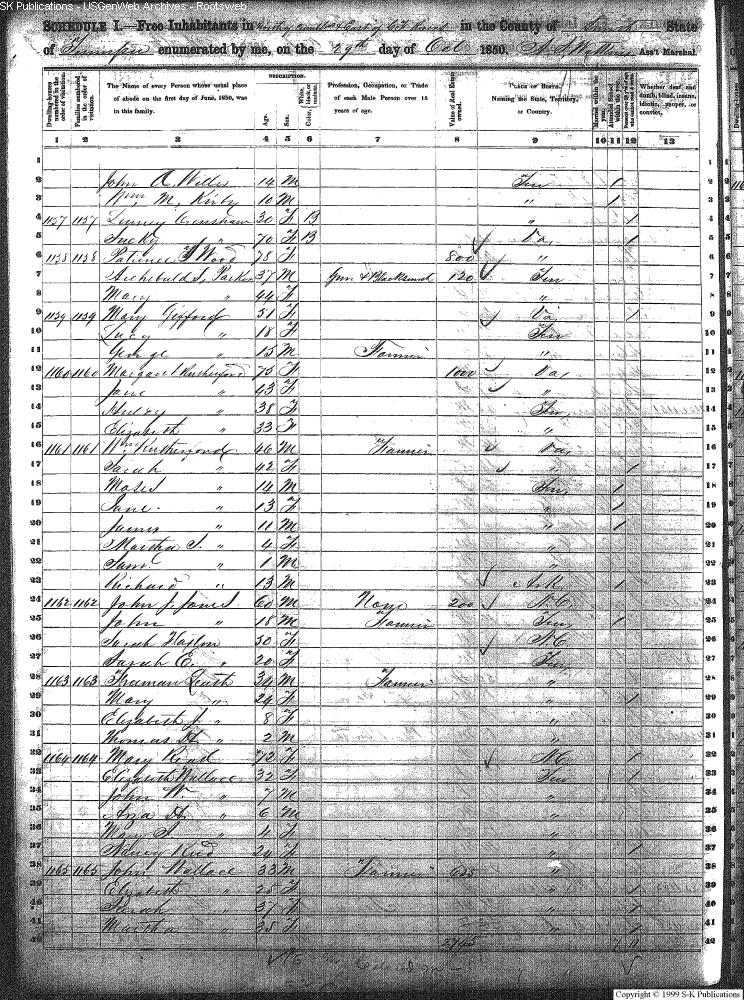 SK Publications - USGenWeb Archives - Rootsweb
SCHEDULE I.—Free Inhabitants in in the County of State
of Tennessee enumerated by me, on the 29th day of Oct 1850. Ass't Marshal.
DESCRIPTION.
Dwelling-houses numbered in the order of visitation. Families numbered in the order of visitation. The Name of every Person whose usual place of abode on the first day of June, 1850, was in this family. Age. Sex. Color, White, black, or mulatto. Profession, Occupation, or Trade of each Male Person over 15 years of age. Value of Real Estate owned. PLACE OF BIRTH. Naming the State, Territory, or Country. Married within the year. Attended School within the year. Persons over 20 y'rs of age who cannot read & write. Whether deaf and dumb, blind, insane, idiotic, pauper, or convict.
1 2 3 4 5 6 7 8 9 10 11 12 13
1 1
2 John A. Willis 14 M Ten 1 2
3 Wm M. Kirby 10 M " 1 3
4 1157 1157 Crenshaw 30 F B " 1 4
5 " 70 F B Va, 1 5
6 1158 1158 Patience Wood 78 F 800 " 6
7 Archebuld S, Parker 37 M Gun & Blacksmith 120 Ten 7
8 Mary " 44 F " 8
9 1159 1159 Mary Gifford 51 F Va, 1 9
10 Lucy " 18 F Ten 10
11 George " 15 M Farmer " 11
12 1160 1160 Margaret Rutherford 75 F 1000 Va, 12
13 Jane " 43 F " 13
14 " 38 F Ten, 14
15 Elizabeth " 33 F " 15
16 1161 1161 Wm Rutherford 46 M Farmer Va, 16
17 Sarah " 42 F " 1 17
18 Moses " 14 M Ten, 1 18
19 Jane " 13 F " 1 19
20 James " 11 M " 1 20
21 Martha S. " 4 F " 21
22 " 1 M " 22
23 Richard " 13 M Ark 1 23
24 1162 1162 John J. Jones 60 M None 200 N.C. 24
25 John " 18 M Farmer Ten, 1 25
26 Sarah 50 F N.C. 26
27 Sarah E. " 20 F Ten, 27
28 1163 1163 Freeman 34 M Farmer " 28
29 Mary " 24 F " 1 29
30 Elizabeth J. " 8 F " 30
31 Thomas H " 2 M " 31
32 1164 1164 Mary Read 72 F N.C. 1 32
33 Elizabeth Wallace 32 F Ten 1 33
34 John W. " 7 M " 34
35 " 6 M " 35
36 Mary S " 4 F " 36
37 24 F " 1 37
38 1165 1165 John Wallace 33 M Farmer 625 " 38
39 Elizabeth " 28 F " 1 39
40 Sarah " 37 F " 1 40
41 Martha " 35 F " 1 41
42 2745 7 11 42
Copyright © 1999 S-K Publications